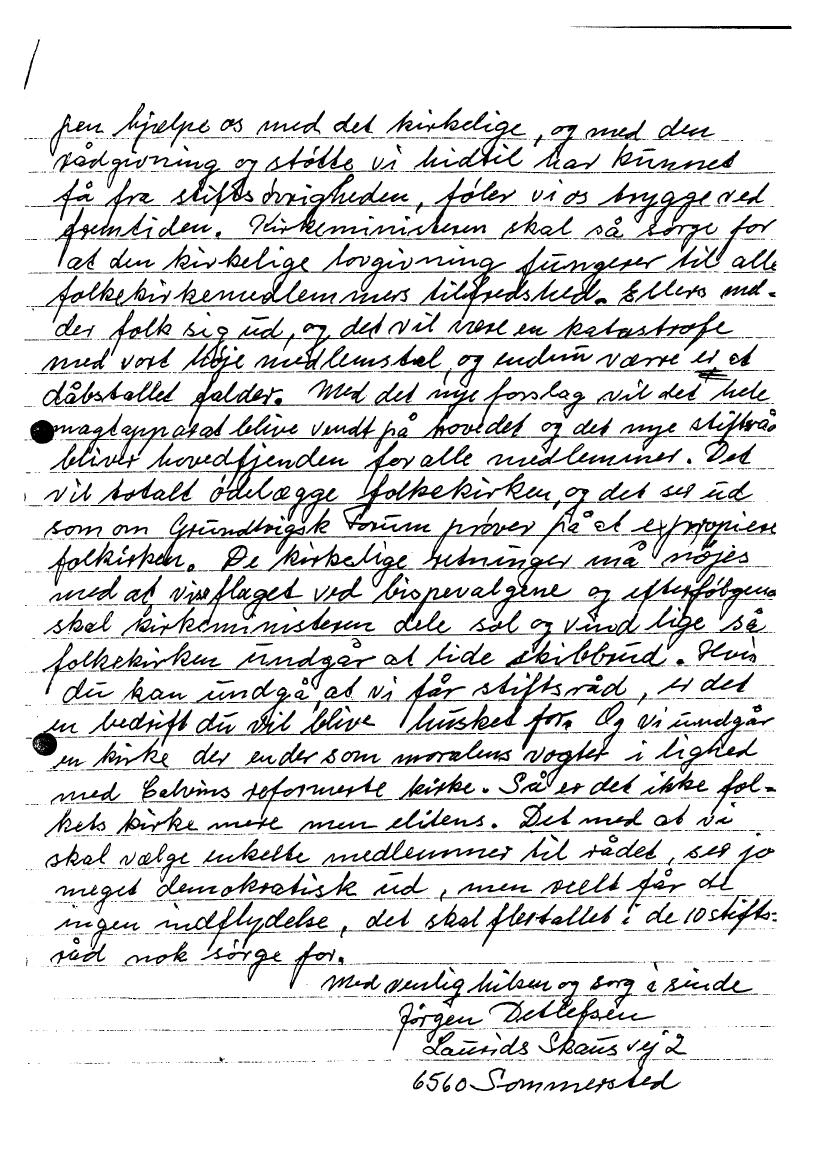 pen hjælpe os med det kirkelige, og med den
rådgivning og støtte vi hidtil har kunnet
få fra stiftsøvrigheden, føler vi os trygge ved
fremtiden. Kirkeministeren skal så sørge for
at den kirkelige lovgivning fungerer til alle
folkekirkemedlemmers tilfredshed. Ellers mel-
der folk sig ud, og det vil være en katastrofe
med vort høje medlemstal, og endnu værre er at
dåbstallet falder. Med det nye forslag vil det hele
magtapparat blive vendt på hovedet og det nye stiftsråd
bliver hovedfjenden for alle medlemmer. Det
vil totalt ødelægge folkekirken, og det ser ud
som om Grundtvigsk Forum prøver på at expropiere
folkirken. De kirkelige retninger må nøjes
med at vise flaget ved bispevalgene og efterfølgende
skal kirkeministeren dele sol og vind lige så
folkekirken undgår at lide skibbrud. Hvis
du kan undgå, at vi får stiftsråd, er det
en bedrift du vil blive husket for. Og vi undgår
en kirke der ender som moralens vogter i lighed
med Calvins reformerte kirke. Så er det ikke fol-
kets kirke mere men elitens. Det med at vi
skal vælge enkelte medlemmer til rådet, ser jo
meget demokratisk ud, men reelt får de
ingen indflydelse, det skal flertallet i de 10 stifts-
råd nok sørge for.
Med venlig hilsen og sorg i sinde
Jørgen Detlefsen
Laurids Skaus vej 2
6560 Sommersted